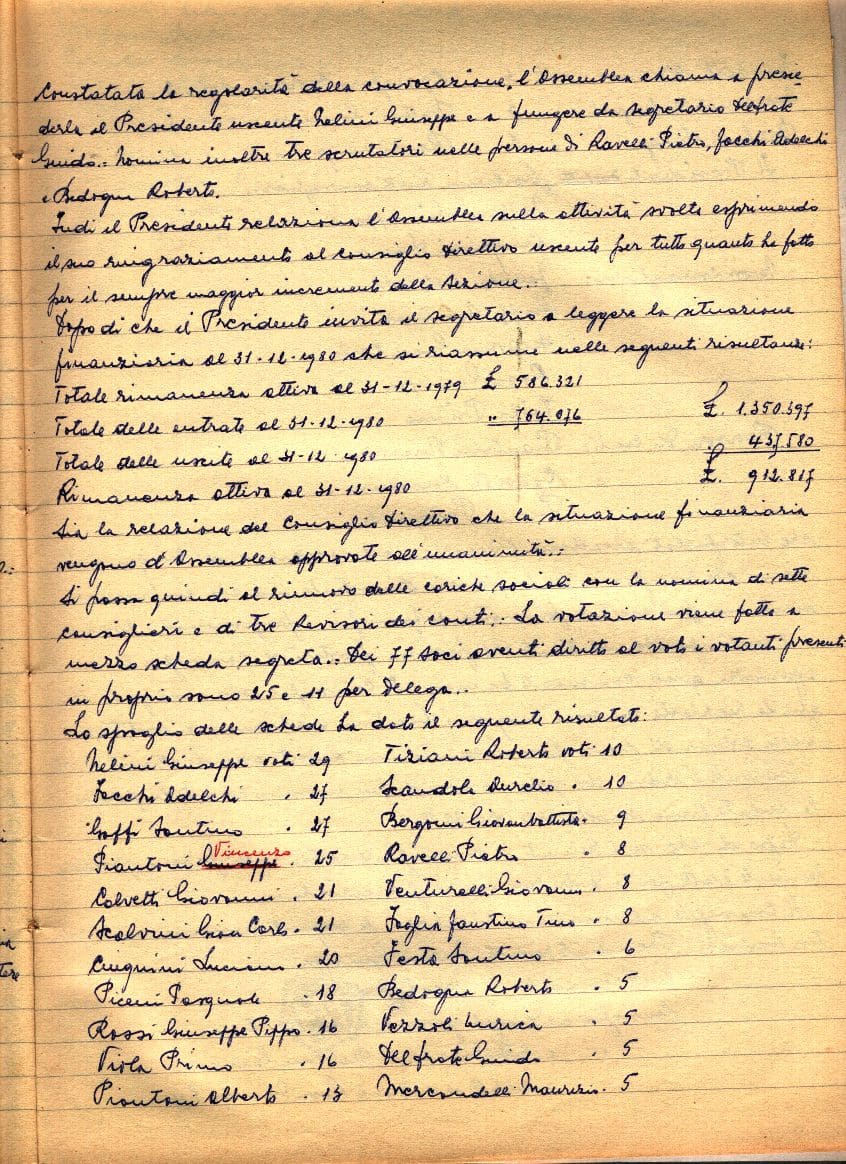 Constatata la regolarità della convocazione, l'Assemblea chiama a presie-
derla il Presidente uscente Nelini Giuseppe e a fungere da segretario Delfrate
Guido.- Nomina inoltre tre scrutatori nelle persone di Ravelli Pietro, Facchi Adelchi
e Bedogna Roberto.
Indi il Presidente relaziona l'Assemblea sulla attività svolta esprimendo
il suo ringraziamento al Consiglio Direttivo uscente per tutto quanto ha fatto
per il sempre maggior incremento della Sezione.
Dopo di che il Presidente invita il segretario a leggere la situazione
finanziaria al 31-12-1980 che si riassume nelle seguenti risultanze:
Totale rimanenza attiva al 31-12-1979 £ 586.321
Totale delle entrate al 31-12-1980 " 764.076 £. 1.350.397
Totale delle uscite al 31-12-1980 £ 437.580
Rimanenza attiva al 31-12-1980 £. 912.817
Sia la relazione del Consiglio Direttivo che la situazione finanziaria
vengono d'Assemblea approvate all'unanimità.-
Si passa quindi al rinnovo delle cariche sociali con la nomina di sette
consiglieri e di tre Revisori dei conti.- La votazione viene fatta a
mezzo scheda segreta.- Dei 77 Soci aventi diritto al voto i votanti presenti
in proprio sono 25 e 11 per delega.-
Lo spoglio delle schede ha dato il seguente risultato:
Nelini Giuseppe voti 29 Tiziani Roberto voti 10
Facchi Adelchi " 27 Scandola Aurelio " 10
Goffi Santino " 27 Bergomi Giovanbattista " 9
Piantoni Giuseppe Vincenzo " 25 Ravelli Pietro " 8
Calvetti Giovanni " 21 Venturelli Giovanni " 8
Scalvini Gian Carlo " 21 Foglia Faustino Tino " 8
Luciano " 20 Festa Santino " 6
Piceni Pasquale " 18 Bedogna Roberto " 5
Rossi Giuseppe Pippo " 16 Vezzoli " 5
Viola Primo " 16 Delfrate Guido " 5
Piantoni Alberto " 13 Mercandelli Maurizio " 5